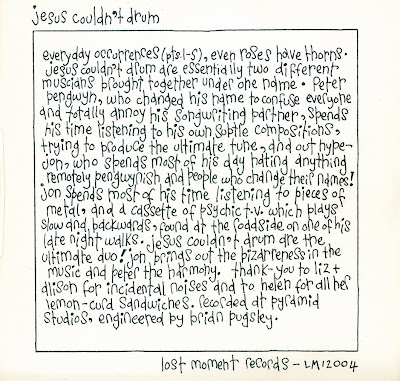 jesus couldn't drum
everyday occurrences (pts. 1-5), even roses have thorns.
jesus couldn't drum are essentially two different
muscians brought together under one name. Peter
pengwyn, who changed his name to confuse everyone
and totally annoy his songwriting partner, spends
his time listening to his own subtle compositions,
trying to produce the ultimate tune, and out hype-
jon, who spends most of his day hating anything
remotely pengwynish and people who change their names!
jon spends most of his time listening to pieces of
metal, and a cassette of psychic t.v. which plays
slow and backwards, found at the roadside on one of his
late night walks. jesus couldn't drum are the
ultimate duo! jon brings out the bizarreness in the
music and peter the harmony. thank-you to liz +
alison for incidental noises and to helen for all her
lemon-curd sandwiches. recorded at pyramid
studios, engineered by brian pugsley.
lost moment records - LM12004